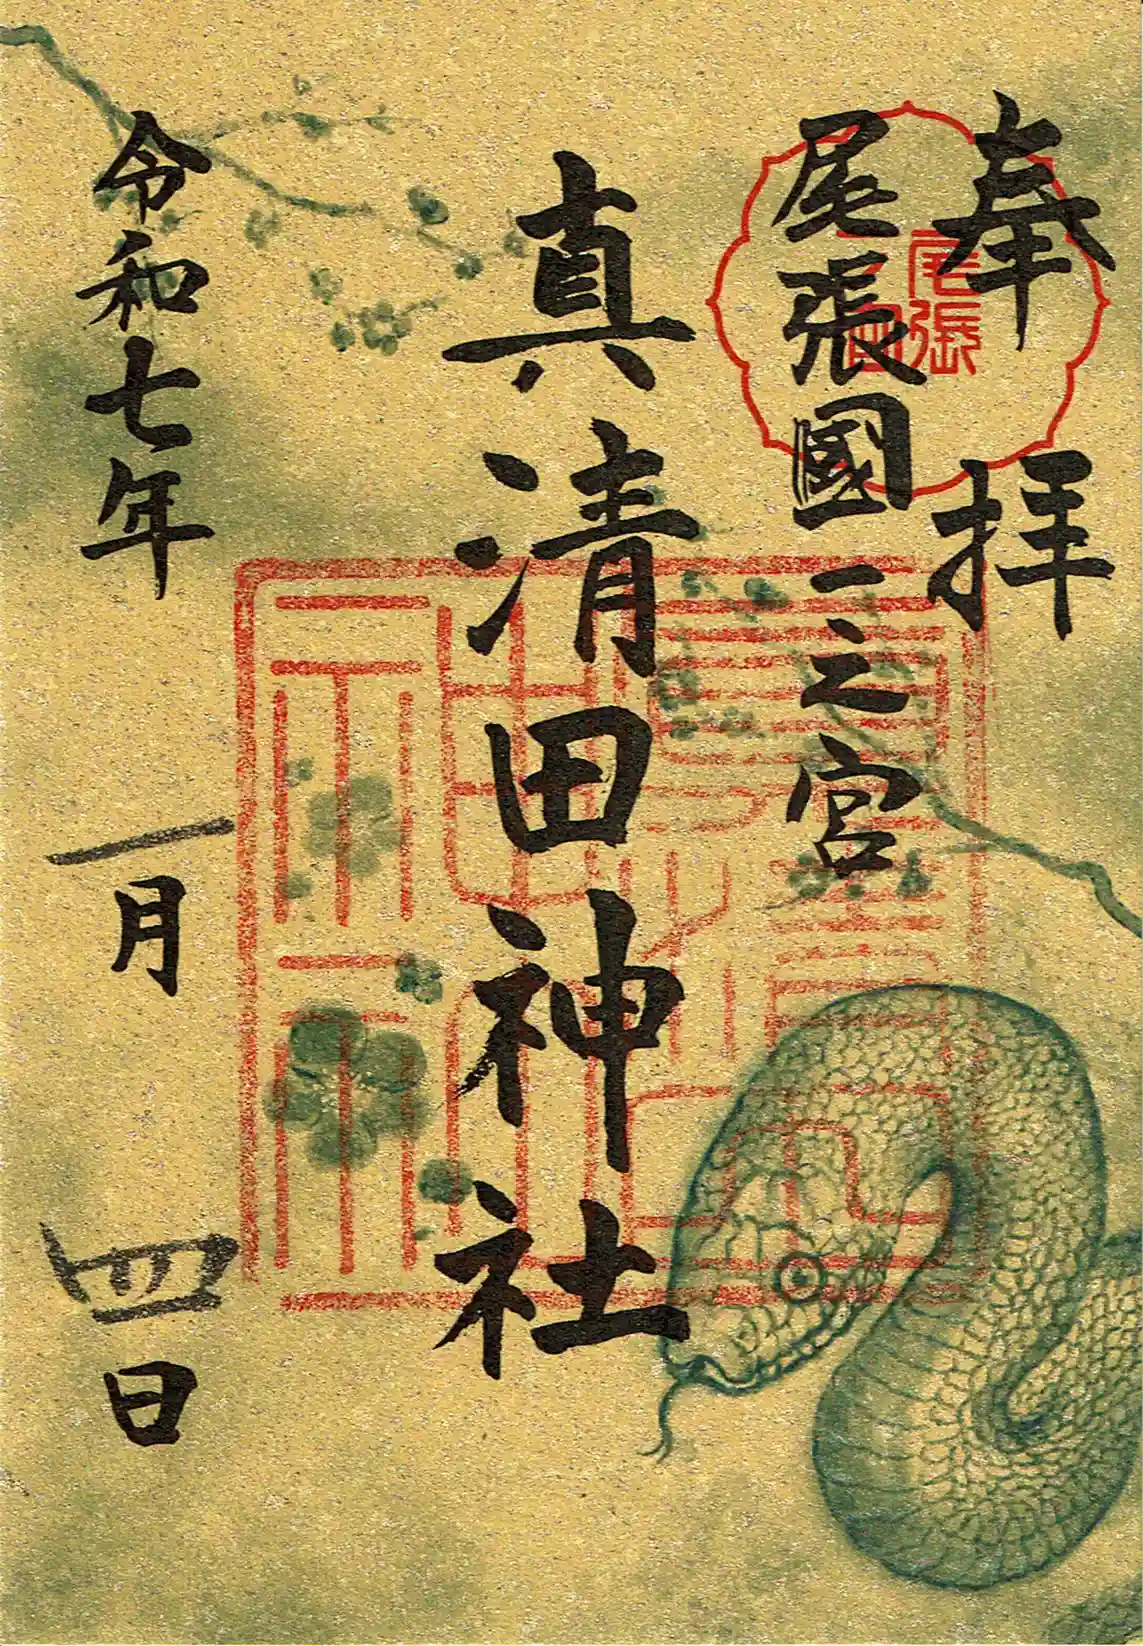 奉拝
尾張國一之宮
真清田神社
令和七年
一月
四日
尾張